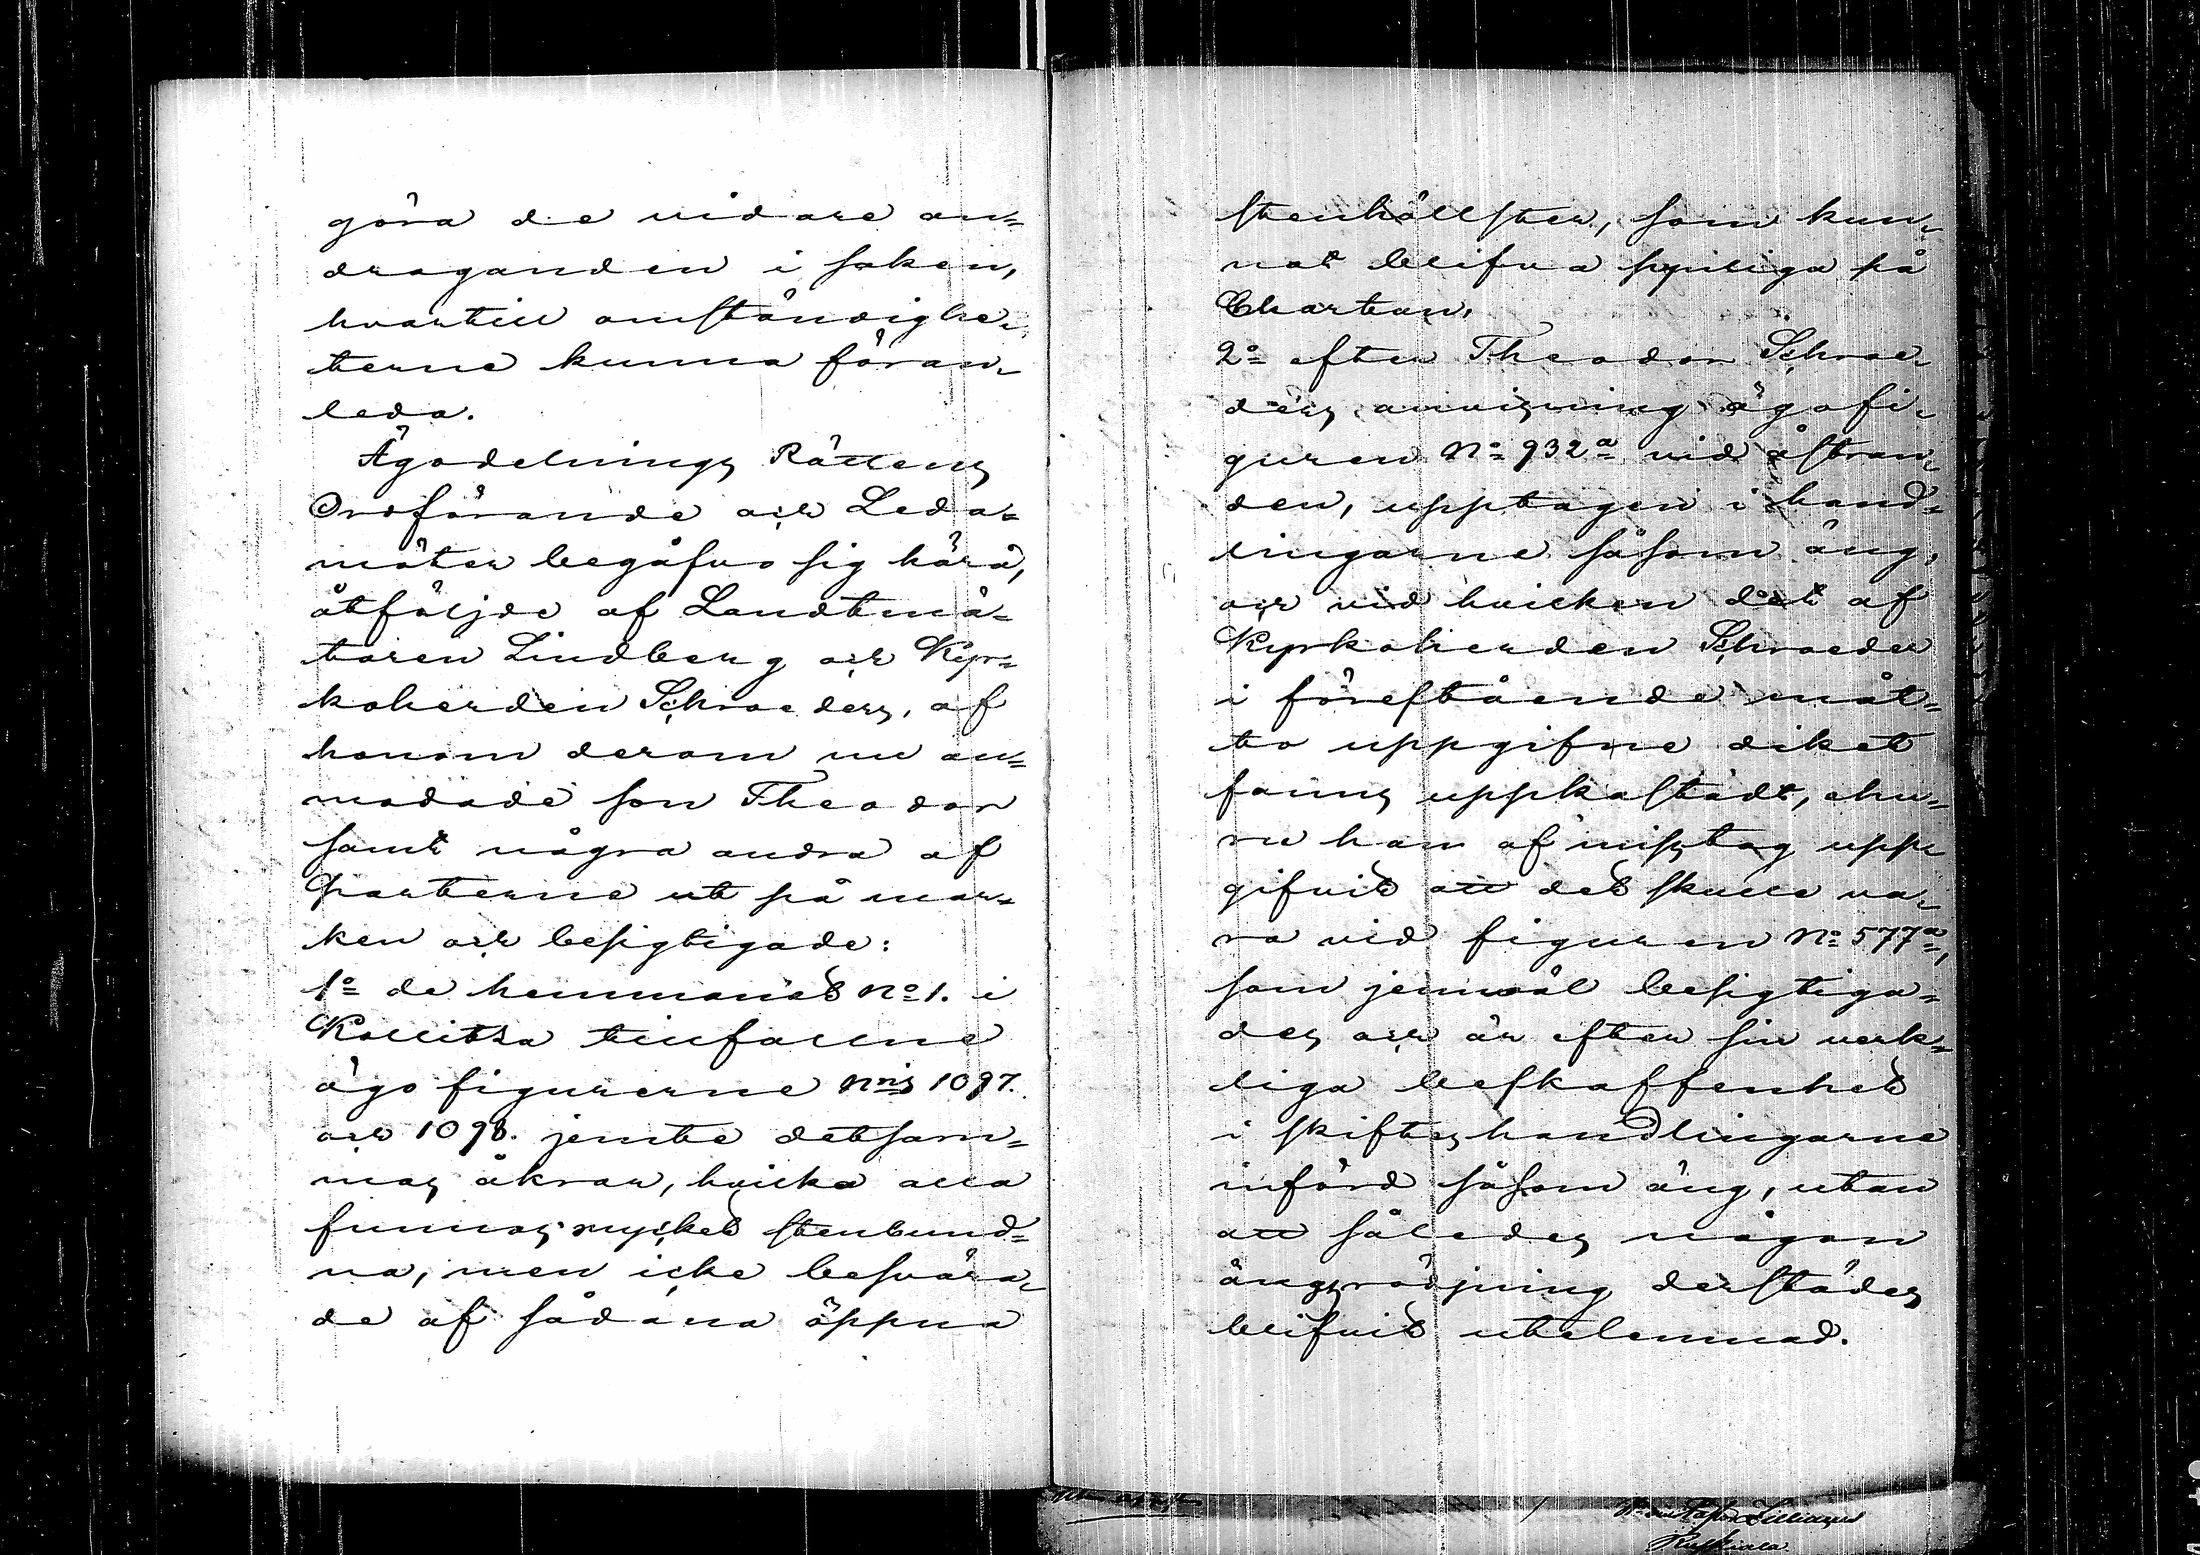 göra de vidare an=
draganden i saken,
hvartill omständighe=
terne kunna föran=
leda.
Ägodelnings Rättens
Ordförande och Leda=
möter begåfvo sig härå,
åtföljde af Landtmä=
taren Lindberg och Kyr=
koherden Schroeders, af
honom derom nu an=
modade son Theodor
samt några andra af
Parterne ut på mar=
ken och besigtigade:
1º de hemmanet Nº 1. i
Kollitsa tillfallne
ägo figurerne Nris 1097.
och 1098. jemte detsam=
mas åkrar, hvilka alla
funnos mycket stenbund=
na, men icke besvära=
de af sådana öppna
stenhällster, som kun=
nat blifva synliga på
Chartan,
2º efter Theodor Schroe=
ders anvisning ägofi=
guren Nº 932ª vid åstran=
den, upptagen i hand=
lingarne såsom äng,
och vid hvilken det af
Kyrkoherden Schroeder
i förestående måt=
to uppgifne diket
fanns uppkastadt, ehu=
ru han af misstag upp=
gifvit att det skulle va=
ra vid figuren Nº 577ª,
som jemväl besigtiga=
des och är efter sin verk=
liga beskaffenhet
i skifteshandlingarne
införd såsom äng, utan
att således någon
ängsrödjning derstädes
blifvit utelemnad.